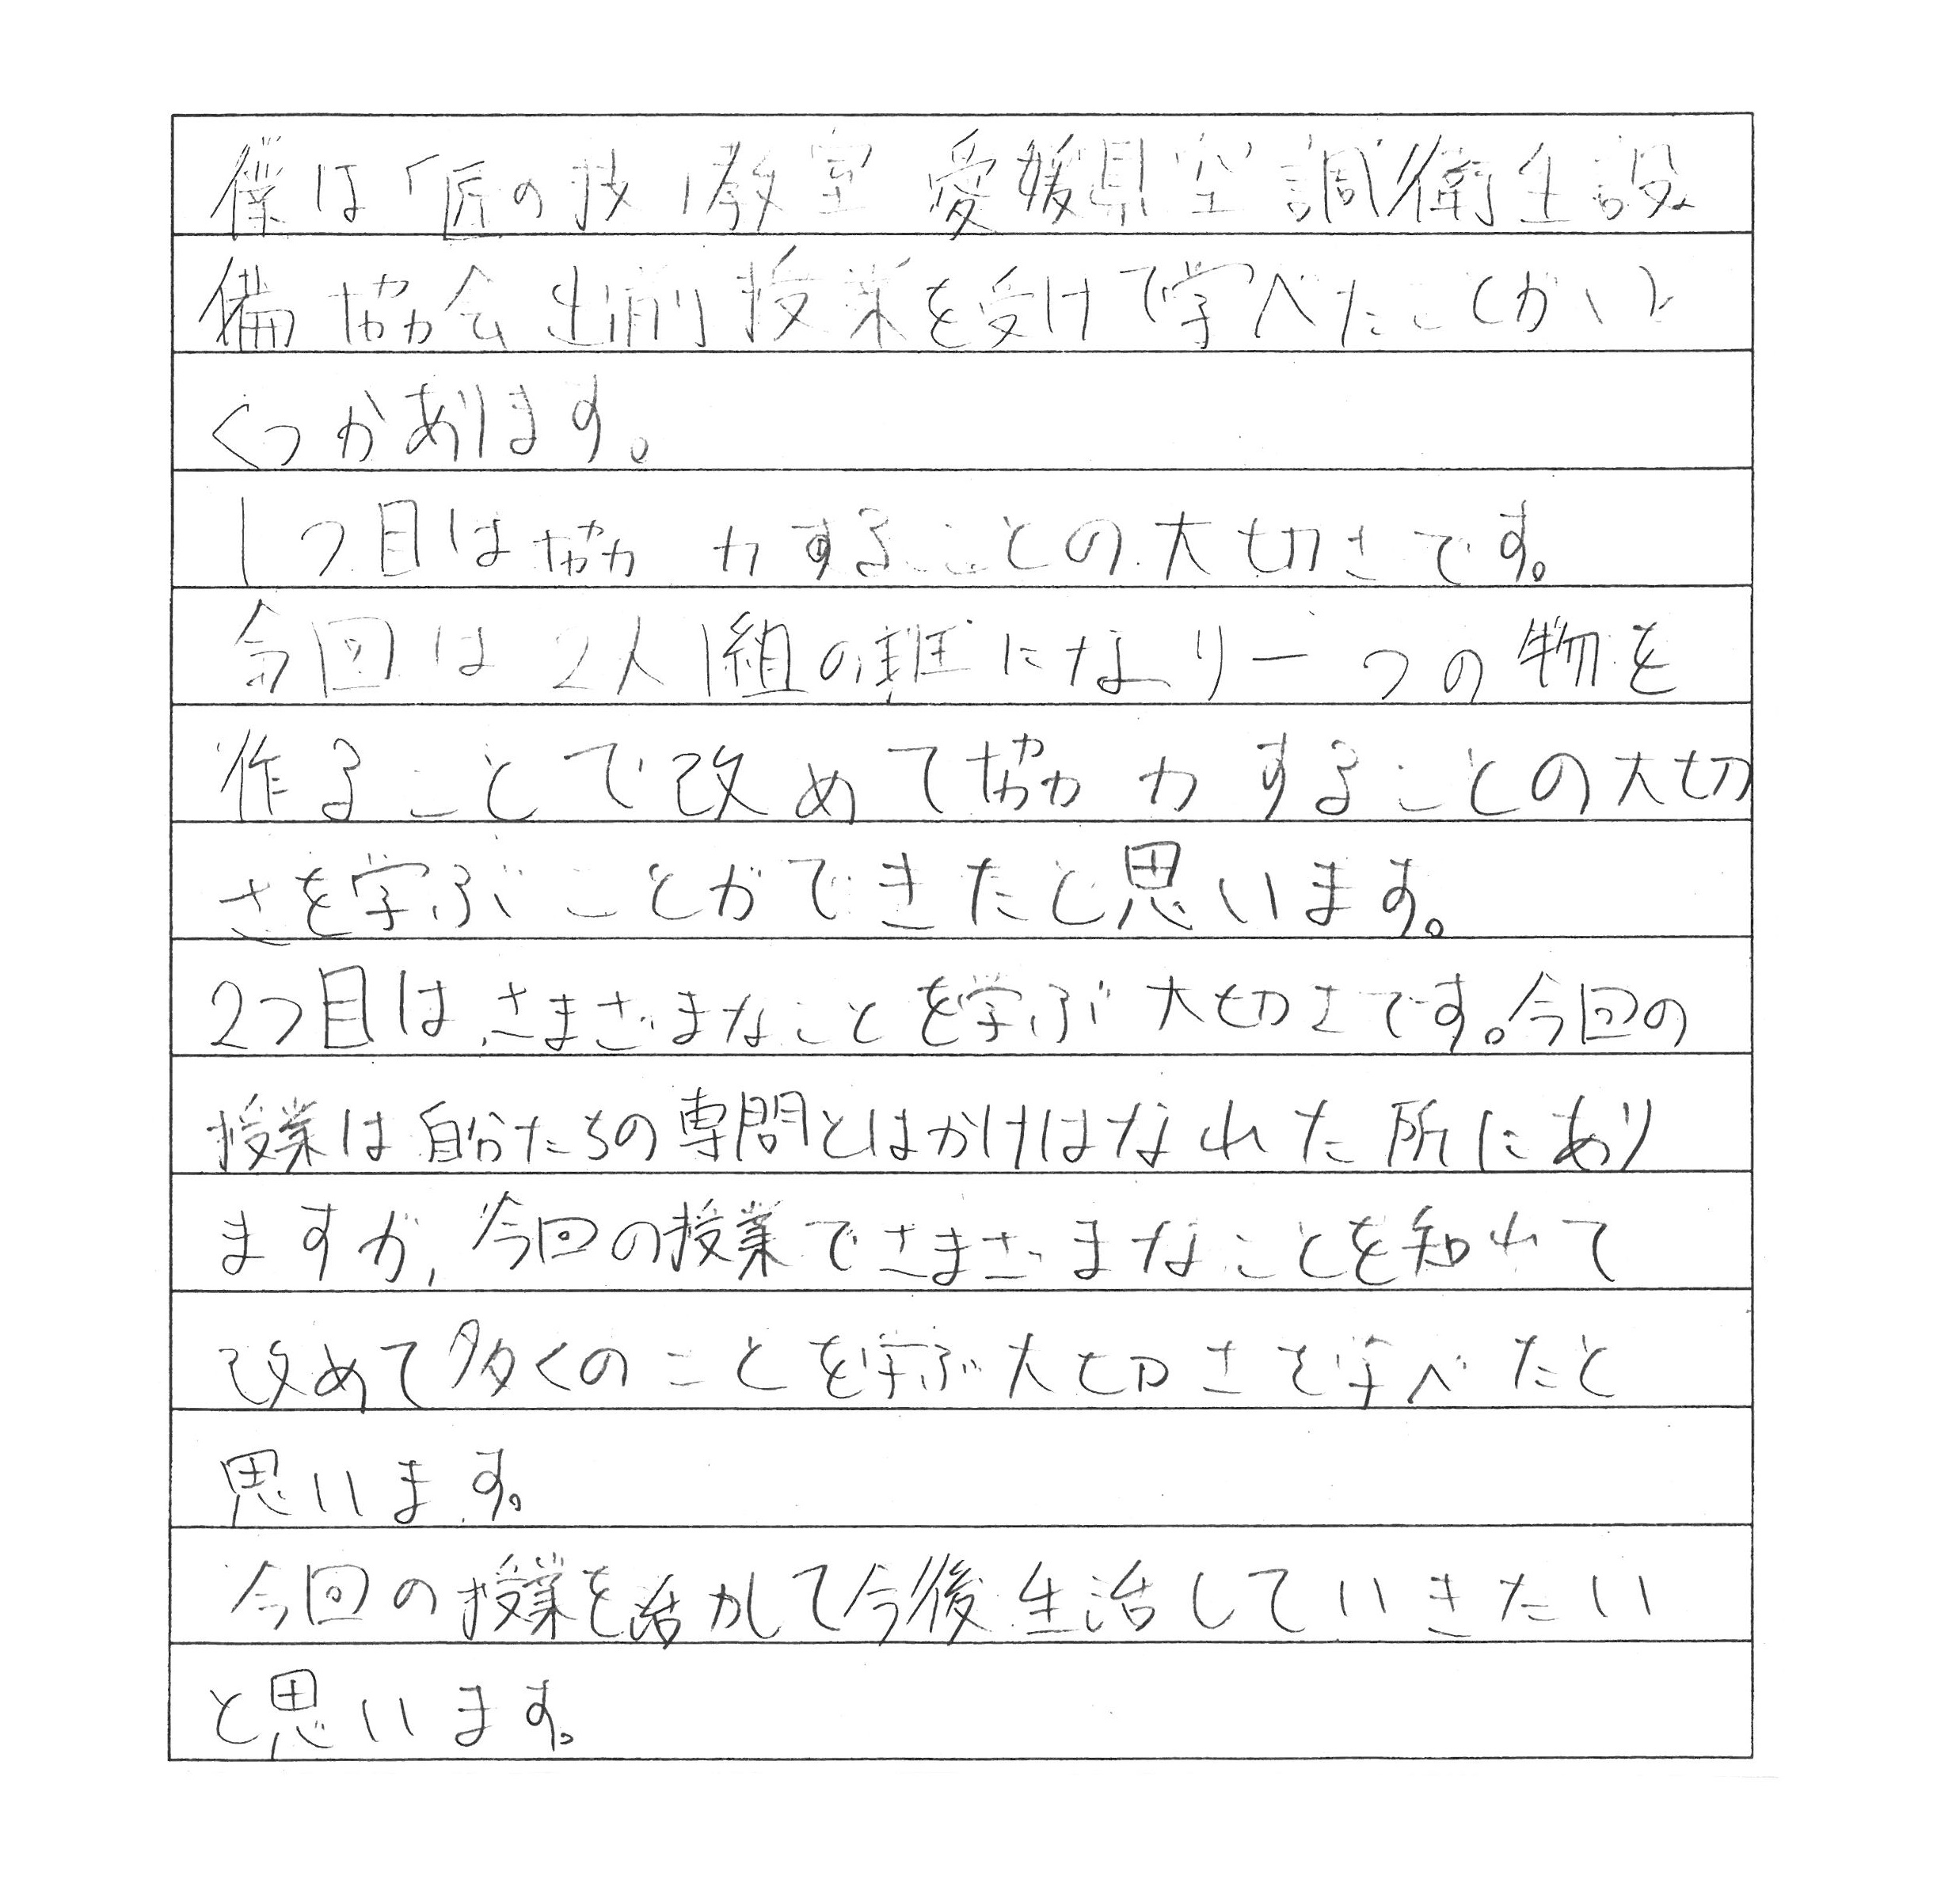 僕は「匠の技」教室 愛媛県空調衛生設
備協会出前授業を受けて学べたことがい
くつかあります。
1つ目は協力することの大切さです。
今回は2人1組の班になり一つの物を
作ることで改めて協力することの大切
さを学ぶことができたと思います。
2つ目はさまざまなことを学ぶ大切さです。今回の
授業は自分たちの専問とはかけはなれた所にあり
ますが,今回の授業でさまざまなことを知れて
改めて多くのことを学ぶ大切さを学べたと
思います。
今回の授業を活かして今後生活していきたい
と思います。